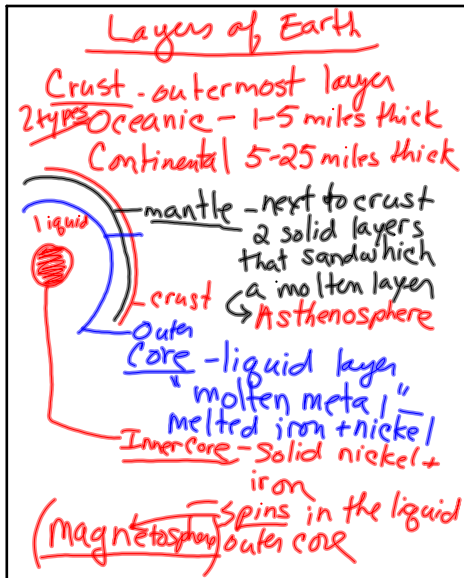 Layers of Earth
Crust - outermost layer
2 types Oceanic - 1-5 miles thick
Continental 5-25 miles thick
liquid
mantle - next to crust
2 solid layers
that sandwhich
a molten layer
crust
Asthenosphere
Outer
Core - liquid layer
"molten metal" -
melted iron + nickel
Inner core - Solid nickel +
iron
Spins in the liquid
(magnetosphere) outer core